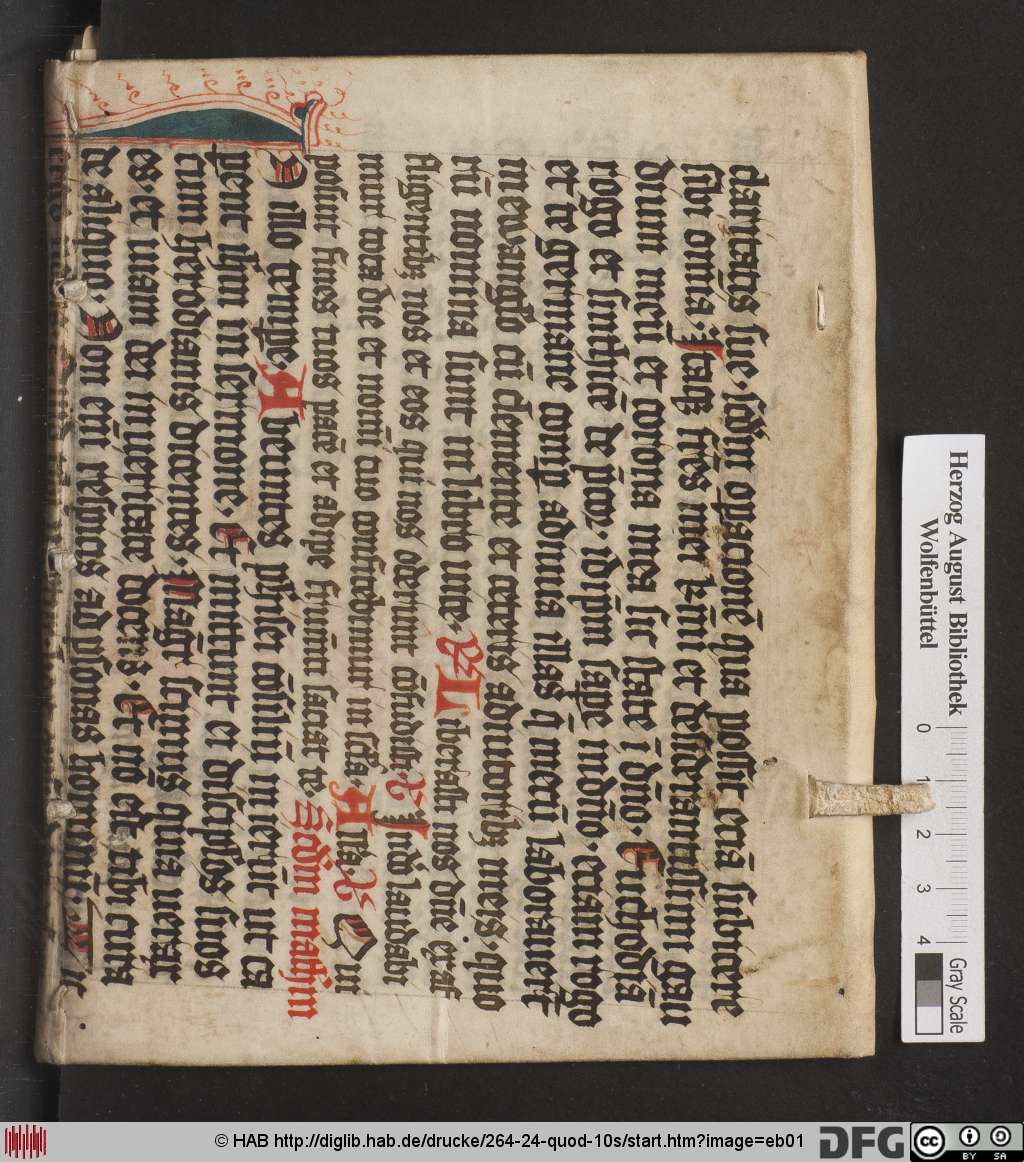 claritatis sue. scdm opacionē qua possit eciā subicere
sibi omnia. Itaqz frēs mei kmi et desiderantissimi gau
dium meū et corona mea sic state ī dño. Euchodiā
rogo et sintycē dep̄cor. idipm sape in dño. eciam rogo
et te germane compar adiuua illas q̄ mecū laborauerūt
in ewanglo cū clemente et ceteris adiutoribz meis. quo
rū nomina sunt in libro uite. V Liberasti nos dñe ex af
fligentibz nos et eos qui nos oderunt cōfudisti. V In deo laudabi
mur tota die et nomini tuo confitebimur in scla. Alla V Qui
posuit fines tuos pacē et adipe frumenti saciat te Scdm mathm
In illo tempore. Abeuntes pharisei cōsiliū inierūt ut ca
perent ihm in sermone. Et mittunt ei discipulos suos
cum herodianis dicentes. Magister scimus quia uerax
es. et uiam dei in ueritate doces. Et nō est tibi cura
de aliquo. Non eni respicis ad psonas hominū.
Herzog August Bibliothek
Wolfenbüttel
0 1 2 3 4 Gray Scale
© HAB http://diglib.hab.de/drucke/264-24-quod-10s/start.htm?image=eb01
DFG
cc BY SA